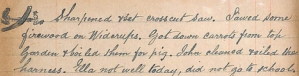 Sharpened & set crosscut saw. Sawed some
firewood on Widerups. Got down carrots from top
garden & boiled them for pig. John cleaned & oiled the
harness. Ella not well today, did not go to school.